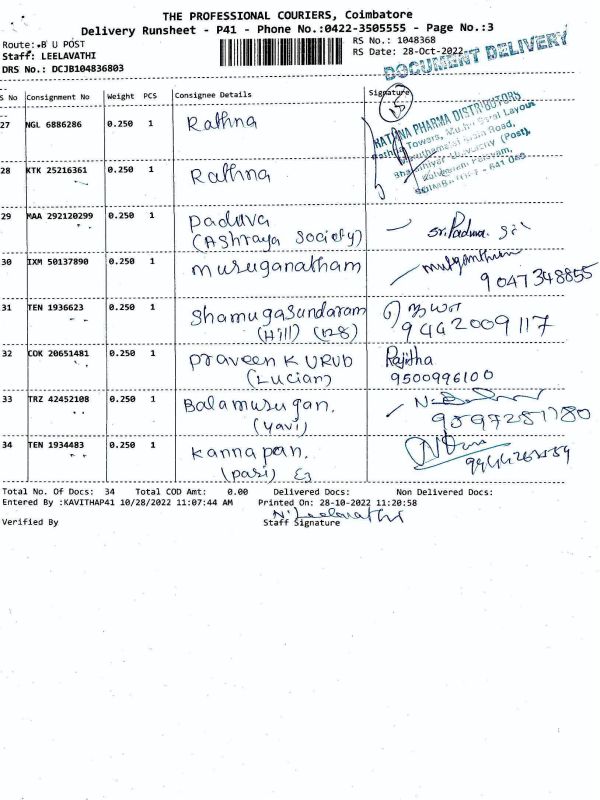 THE PROFESSIONAL COURIERS, Coimbatore
Delivery Runsheet - P41 - Phone No.:0422-3505555 - Page No.:3
Route: B U POST
RS No.: 1048368
Staff: LEELAVATHI
RS Date: 28-Oct-2022
DRS No.: DCJB104836803
DOCUMENT DELIVERY
S No Consignment No Weight PCS Consignee Details Signature
15
27 NGL 6886286 0.250 1 Rathna
RATHNA PHARMA DISTRIBUTORS
28 KTK 25216361 0.250 1 Rathna
29 MAA 292120299 0.250 1 Paduva
(Ashraya Society)
Sri.Padma
30 IXM 50137890 0.250 1 Muruganatham
9047348855
31 TEN 1936623 0.250 1 Shamugasundaram
(Hill) (128)
9442009117
32 COK 20651481 0.250 1 Praveen KURUB
(Lucian)
Rajitha
9500996100
33 TRZ 42452108 0.250 1 Balamurugan.
(Yavi)
34 TEN 1934483 0.250 1 Kannapan.
(Pari)
Total No. Of Docs: 34 Total COD Amt: 0.00 Delivered Docs: Non Delivered Docs:
Entered By :KAVITHAP41 10/28/2022 11:07:44 AM Printed On: 28-10-2022 11:20:58
N. Leelavathi
Verified By Staff Signature